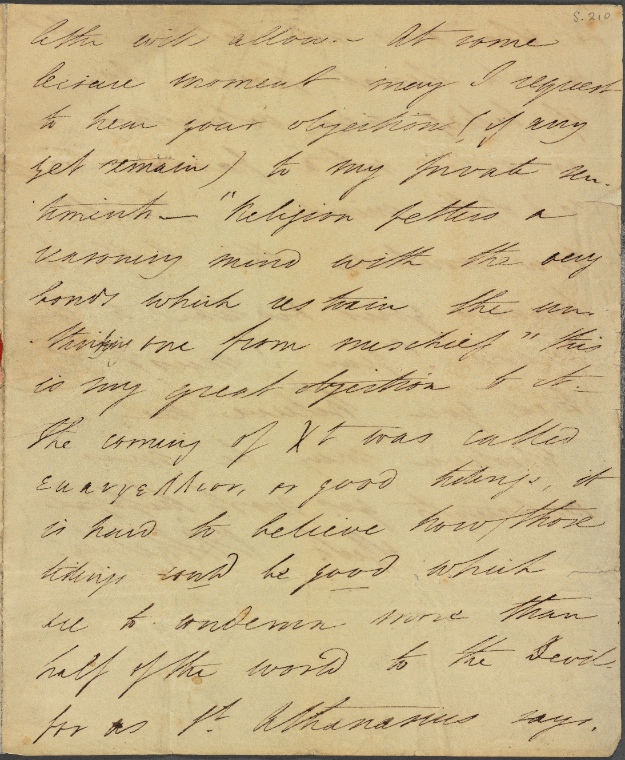 S. 210
letter will allow. – At some
leisure moment may I request
to hear your objections (if any
yet remain) to my private sen-
timents – "Religion fetters a
reasoning mind with the very
bonds which restrain the un-
thinking one from mischief" this
is my great objection to it –
The coming of Xt was called
ευαγγελλιον, or good tidings, it
is hard to believe how those
tidings could be good which
are to condemn more than
half of the world to the Devil
for as St. Athanasius says,